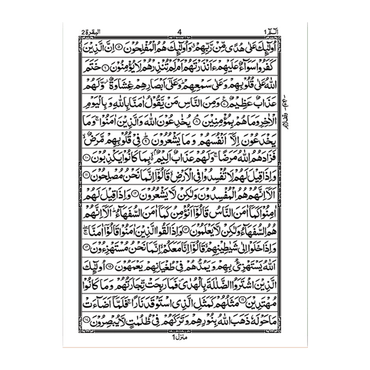 البقرة ٢ 4 الٓمّٓ ١
اُولٰٓئِكَ عَلٰى هُدًى مِّنْ رَّبِّهِمْ وَاُولٰٓئِكَ هُمُ الْمُفْلِحُوْنَ ۝ اِنَّ الَّذِيْنَ
كَفَرُوْا سَوَآءٌ عَلَيْهِمْ ءَاَنْذَرْتَهُمْ اَمْ لَمْ تُنْذِرْهُمْ لَا يُؤْمِنُوْنَ ۝ خَتَمَ
اللّٰهُ عَلٰى قُلُوْبِهِمْ وَعَلٰى سَمْعِهِمْ وَعَلٰٓى اَبْصَارِهِمْ غِشَاوَةٌ وَّلَهُمْ
عَذَابٌ عَظِيْمٌ ۝ وَمِنَ النَّاسِ مَنْ يَّقُوْلُ اٰمَنَّا بِاللّٰهِ وَبِالْيَوْمِ
الْاٰخِرِ وَمَا هُمْ بِمُؤْمِنِيْنَ ۝ يُخٰدِعُوْنَ اللّٰهَ وَالَّذِيْنَ اٰمَنُوْا وَمَا
يَخْدَعُوْنَ اِلَّآ اَنْفُسَهُمْ وَمَا يَشْعُرُوْنَ ۝ فِيْ قُلُوْبِهِمْ مَّرَضٌ
فَزَادَهُمُ اللّٰهُ مَرَضًا وَلَهُمْ عَذَابٌ اَلِيْمٌ بِمَا كَانُوْا يَكْذِبُوْنَ ۝
وَاِذَا قِيْلَ لَهُمْ لَا تُفْسِدُوْا فِى الْاَرْضِ قَالُوْٓا اِنَّمَا نَحْنُ مُصْلِحُوْنَ ۝
اَلَآ اِنَّهُمْ هُمُ الْمُفْسِدُوْنَ وَلٰكِنْ لَّا يَشْعُرُوْنَ ۝ وَاِذَا قِيْلَ لَهُمْ
اٰمِنُوْا كَمَآ اٰمَنَ النَّاسُ قَالُوْٓا اَنُؤْمِنُ كَمَآ اٰمَنَ السُّفَهَآءُ اَلَآ اِنَّهُمْ
هُمُ السُّفَهَآءُ وَلٰكِنْ لَّا يَعْلَمُوْنَ ۝ وَاِذَا لَقُوا الَّذِيْنَ اٰمَنُوْا قَالُوْٓا اٰمَنَّا
وَاِذَا خَلَوْا اِلٰى شَيٰطِيْنِهِمْ قَالُوْٓا اِنَّا مَعَكُمْ اِنَّمَا نَحْنُ مُسْتَهْزِءُوْنَ ۝
اَللّٰهُ يَسْتَهْزِئُ بِهِمْ وَيَمُدُّهُمْ فِيْ طُغْيَانِهِمْ يَعْمَهُوْنَ ۝ اُولٰٓئِكَ
الَّذِيْنَ اشْتَرَوُا الضَّلٰلَةَ بِالْهُدٰى فَمَا رَبِحَتْ تِّجَارَتُهُمْ وَمَا كَانُوْا
مُهْتَدِيْنَ ۝ مَثَلُهُمْ كَمَثَلِ الَّذِى اسْتَوْقَدَ نَارًا فَلَمَّآ اَضَآءَتْ
مَا حَوْلَهٗ ذَهَبَ اللّٰهُ بِنُوْرِهِمْ وَتَرَكَهُمْ فِيْ ظُلُمٰتٍ لَّا يُبْصِرُوْنَ ۝
منزل 1